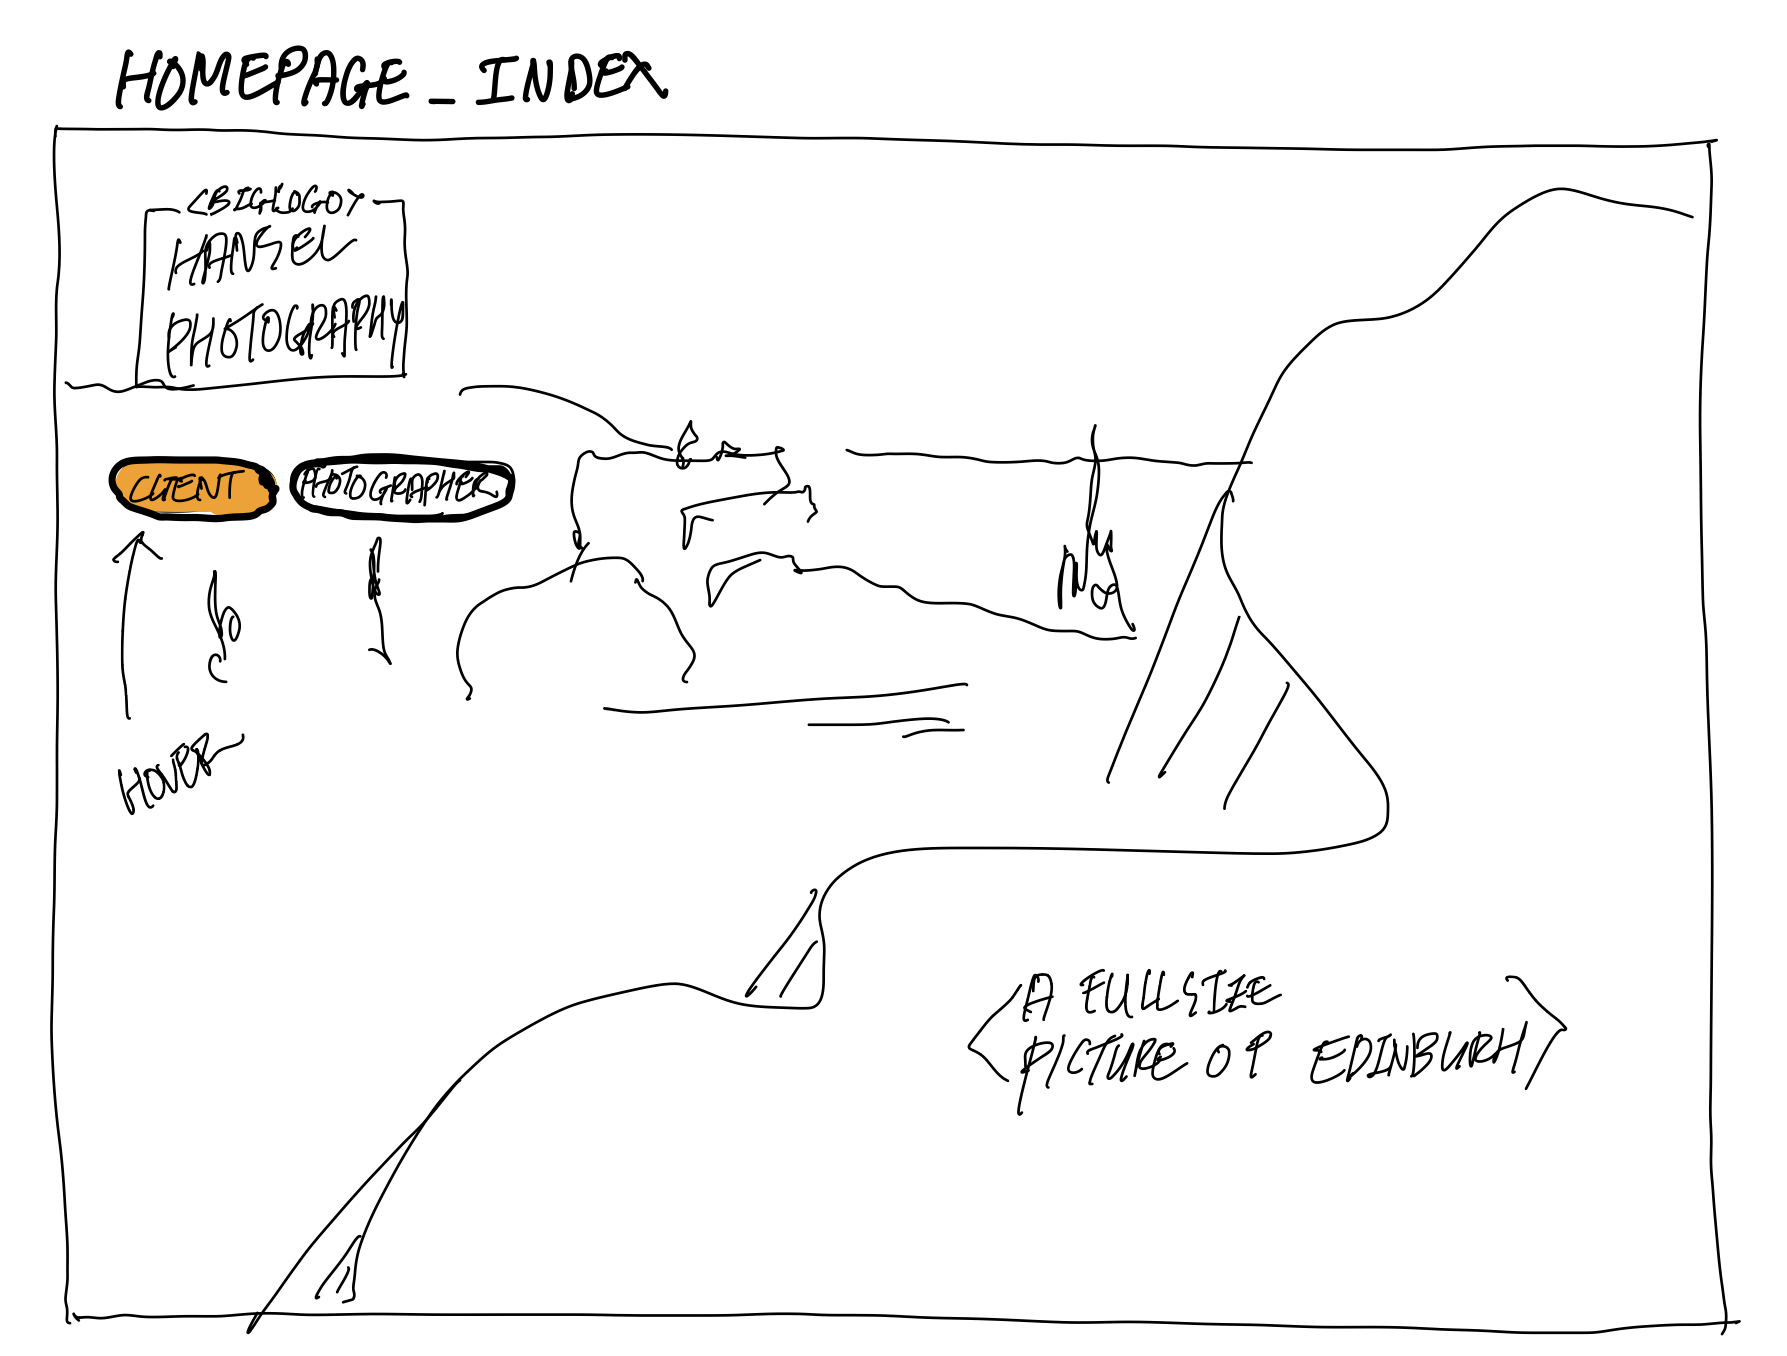 HOMEPAGE_INDEX
<BIGLOGO>
HANSEL
PHOTOGRAPHY
CLIENT
PHOTOGRAPHER
HOVER
<A FULLSIZE
PICTURE OF EDINBURH>